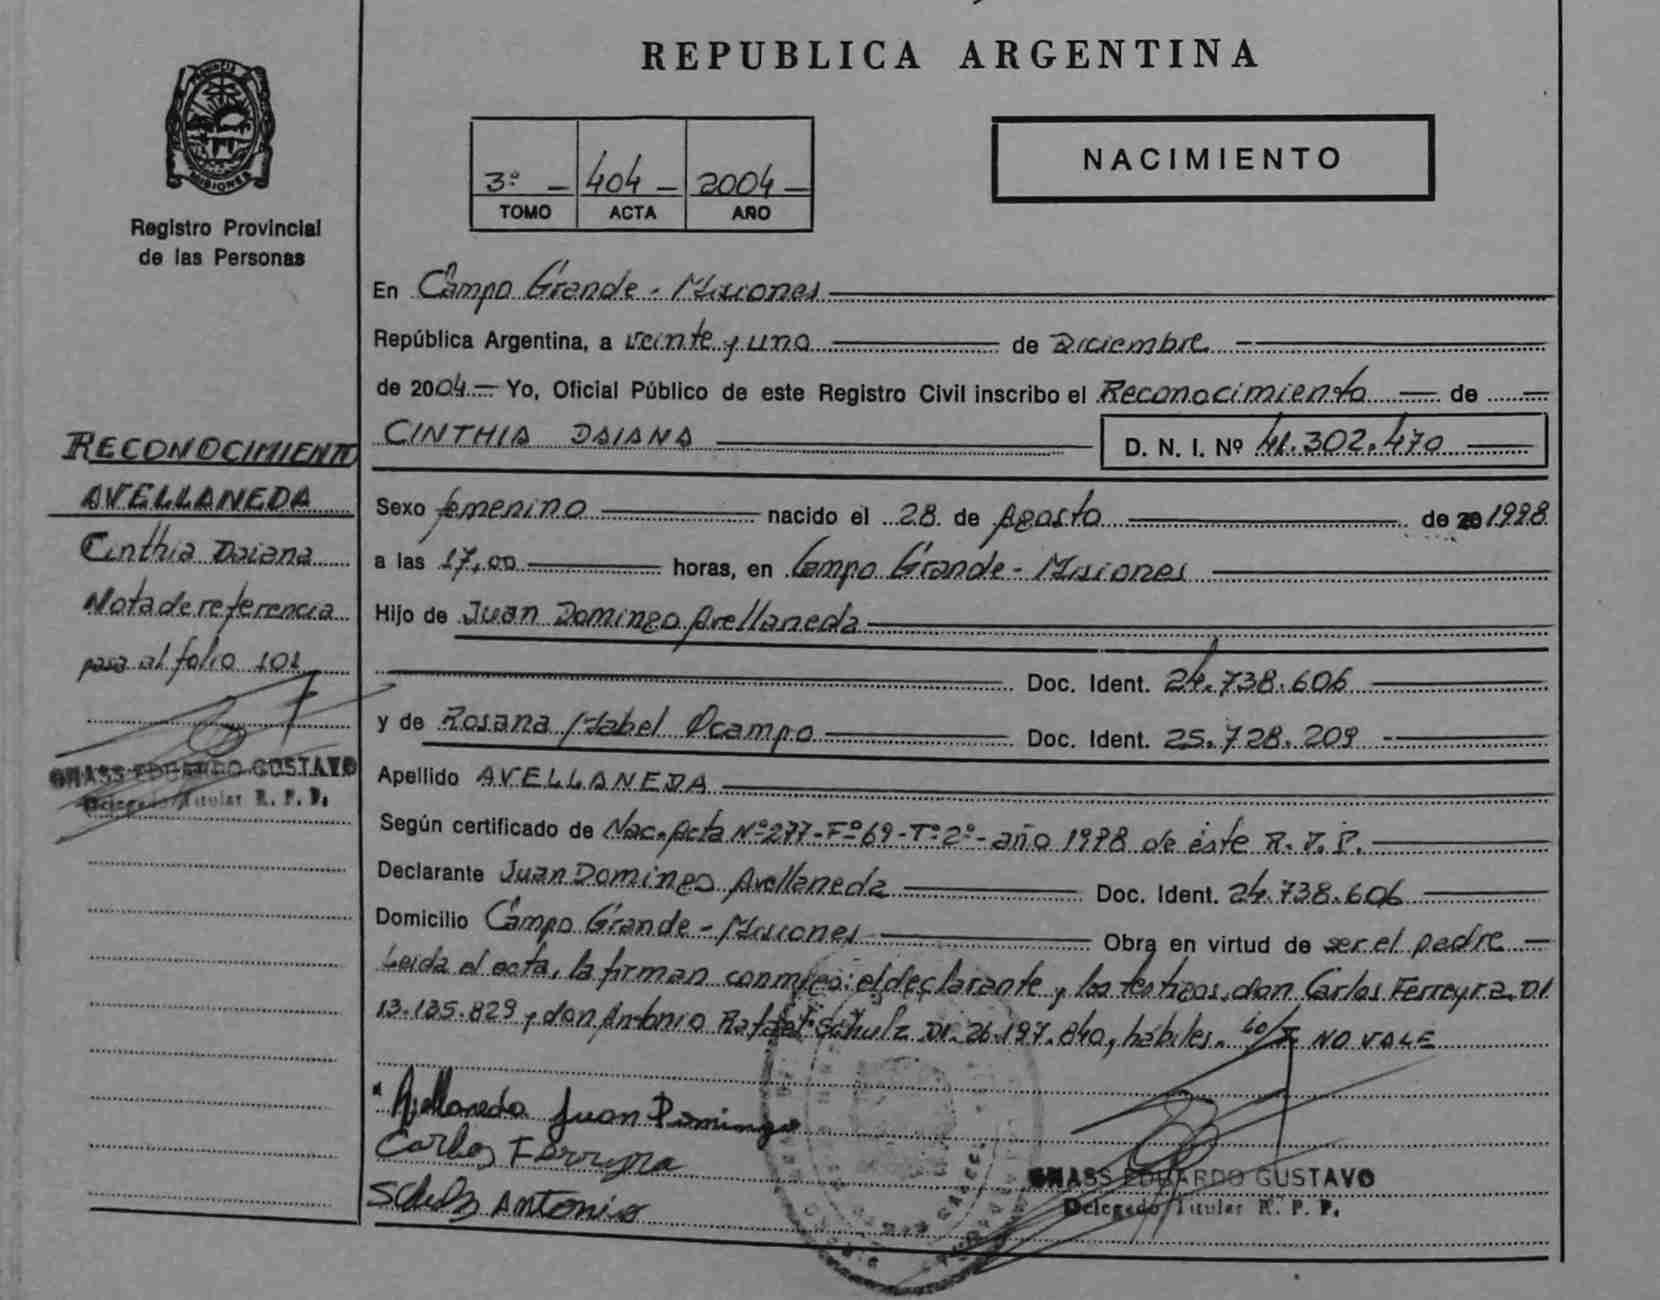 REPUBLICA ARGENTINA
PROVINCIA DE
MISIONES
Registro Provincial
de las Personas
3º - 404 - 2004 -
TOMO ACTA AÑO
NACIMIENTO
En Campo Grande - Misiones
República Argentina, a veinte y uno de Diciembre
de 2004 - Yo, Oficial Público de este Registro Civil inscribo el Reconocimiento de
CINTHIA DAIANA D. N. I. Nº 41.302.470
Sexo femenino nacido el 28 de Agosto de 1998
a las 17,00 horas, en Campo Grande - Misiones
Hijo de Juan Domingo Avellaneda
Doc. Ident. 24.738.606
y de Rosana Mabel Ocampo Doc. Ident. 25.728.209
Apellido AVELLANEDA
Según certificado de Nac. Acta Nº 277 - Fº 69 - Tº 2º - año 1998 de éste R. P. P.
Declarante Juan Domingo Avellaneda Doc. Ident. 24.738.606
Domicilio Campo Grande - Misiones Obra en virtud de ser el padre
Leida el acta, la firman conmigo: el declarante y los testigos, don Carlos Ferreyra DI
13.135.829 y don Antonio Rafael Schulz DI. 26.197.840, hábiles. NO VALE
Avellaneda Juan Domingo
Carlos Ferreyra
Schulz Antonio
GNASS EDUARDO GUSTAVO
Delegado Titular R. P. P.
RECONOCIMIENTO
AVELLANEDA
Cinthia Daiana
Nota de referencia
pasa al folio 101
GNASS EDUARDO GUSTAVO
Delegado Titular R. P. P.